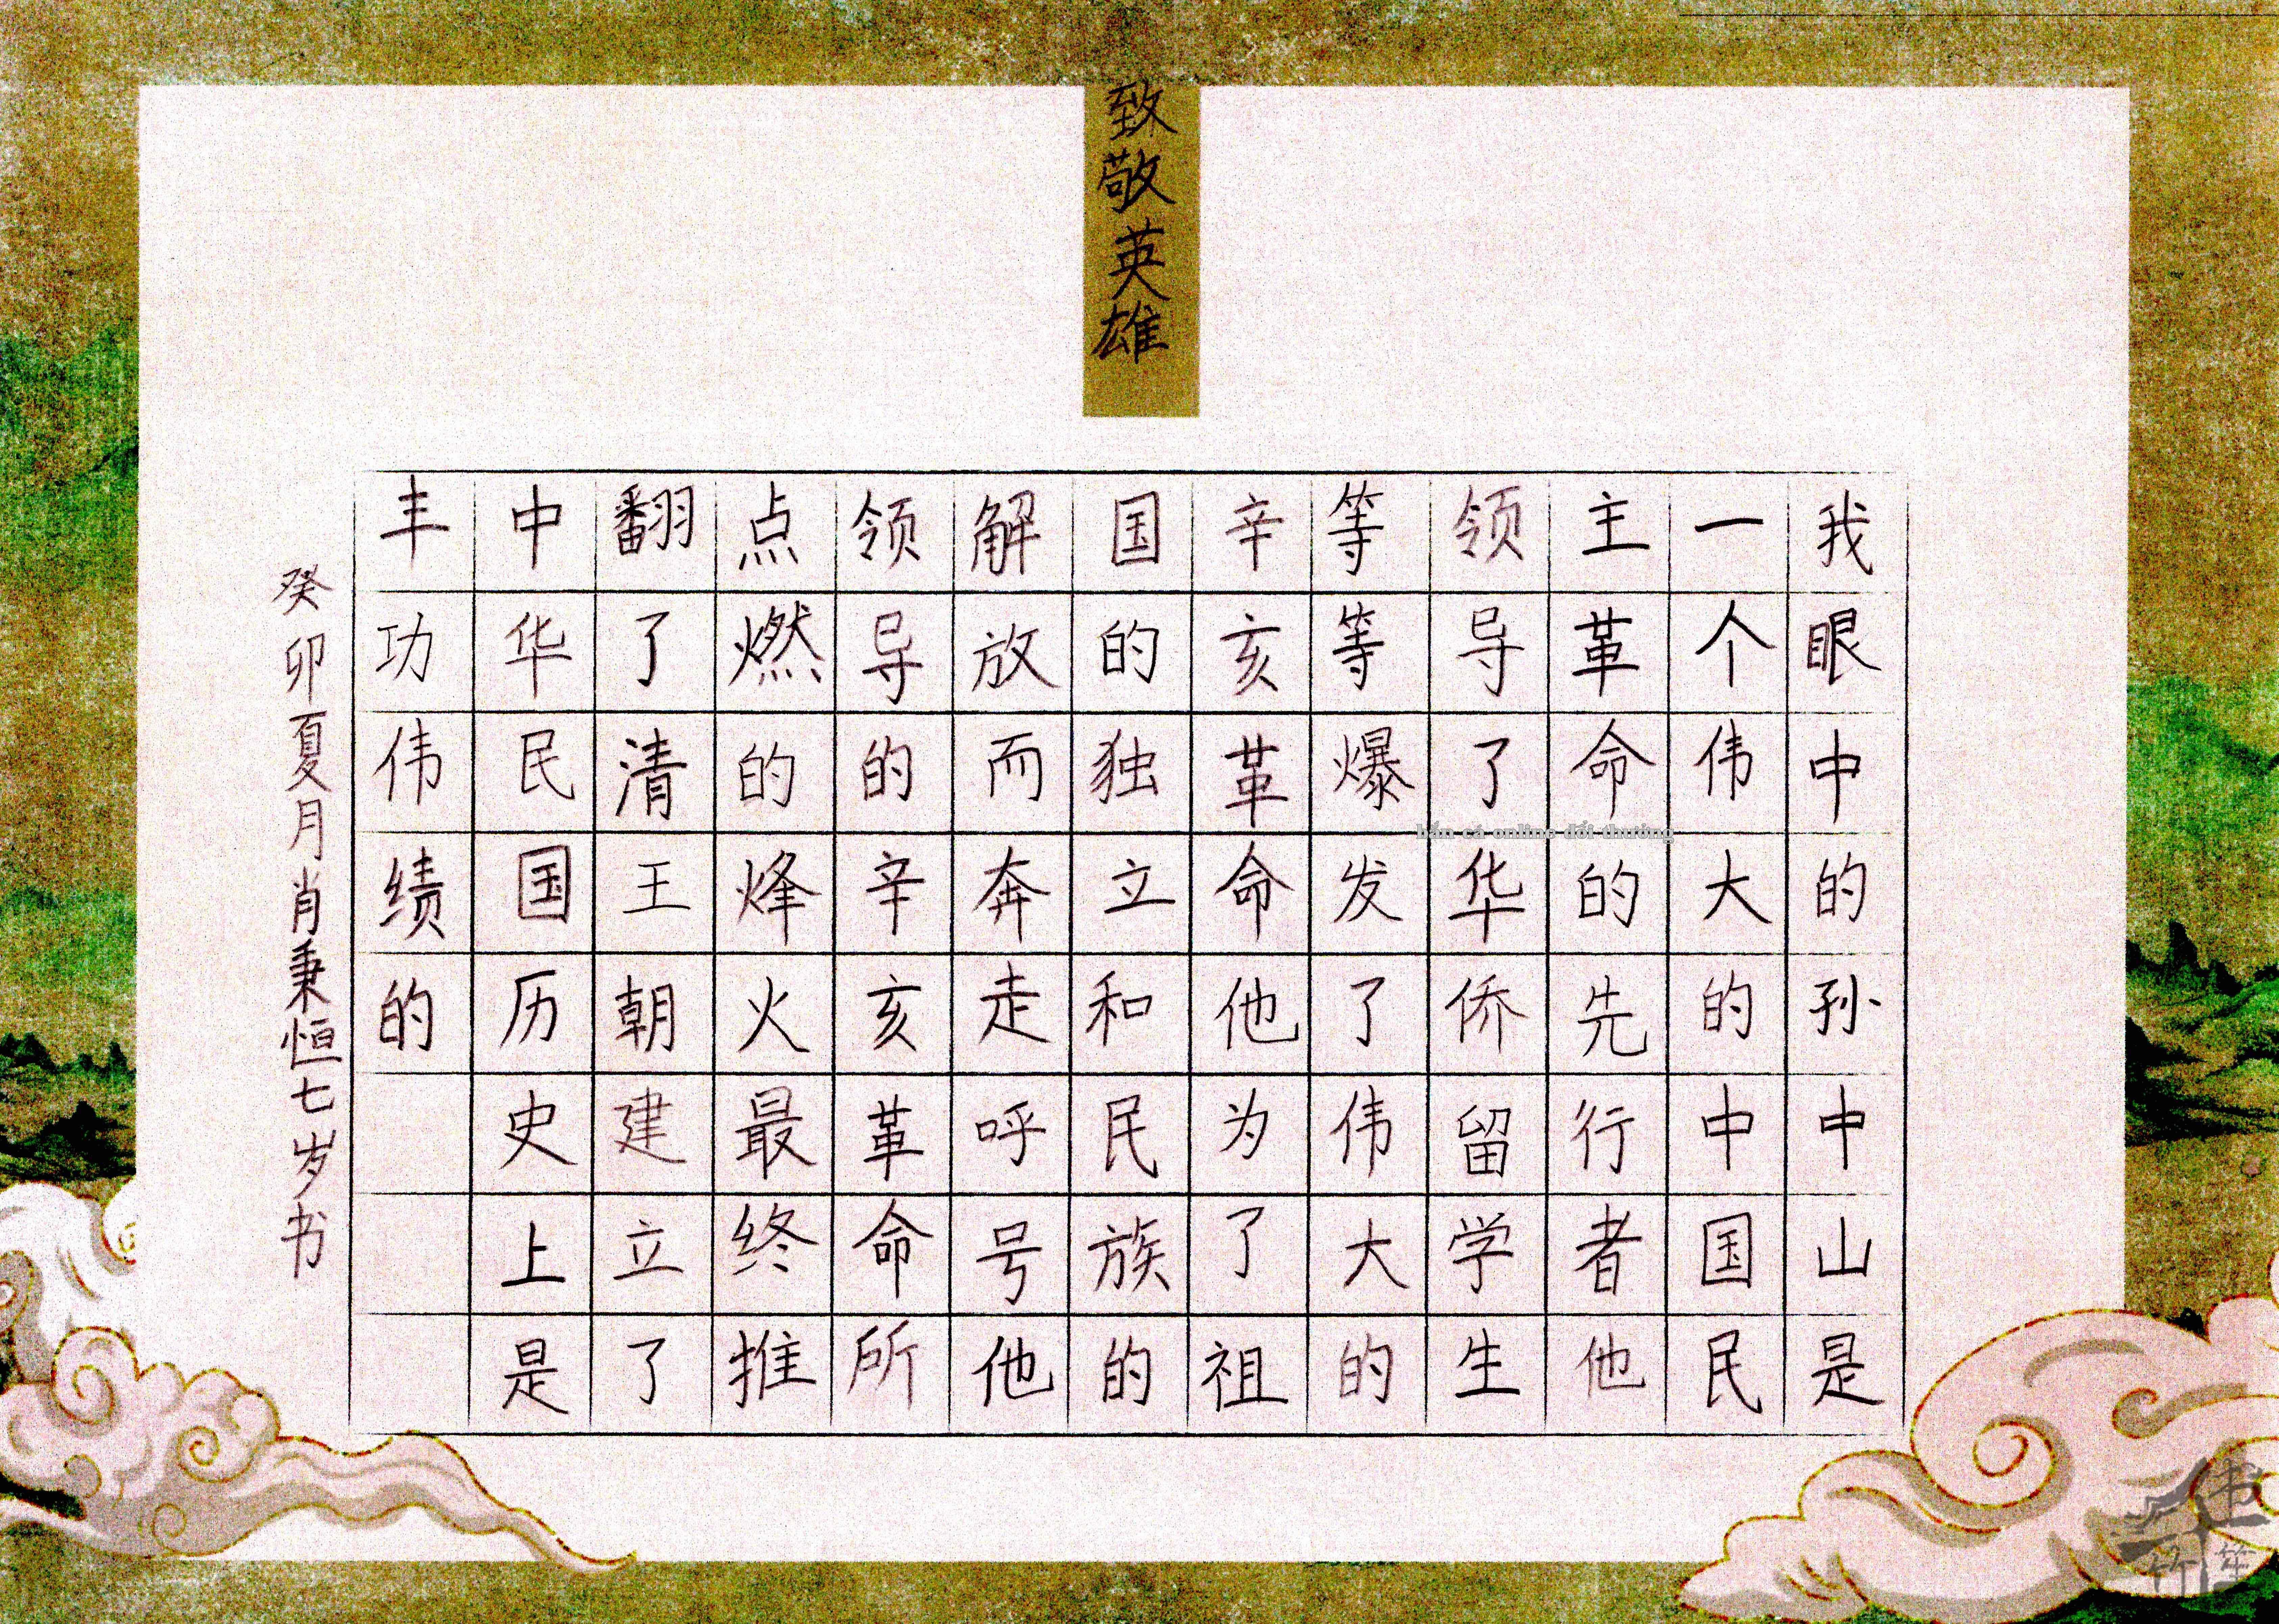 致敬英雄
我眼中的孙中山是
一个伟大的中国民
主革命的先行者他
领导了华侨留学生
等等爆发了伟大的
辛亥革命他为了祖
国的独立和民族的
解放而奔走呼号他
领导的辛亥革命所
点燃的烽火最终推
翻了清王朝建立了
中华民国历史上是
丰功伟绩的
癸卯夏月肖秉恒七岁书
bắn cá online đổi thưởng